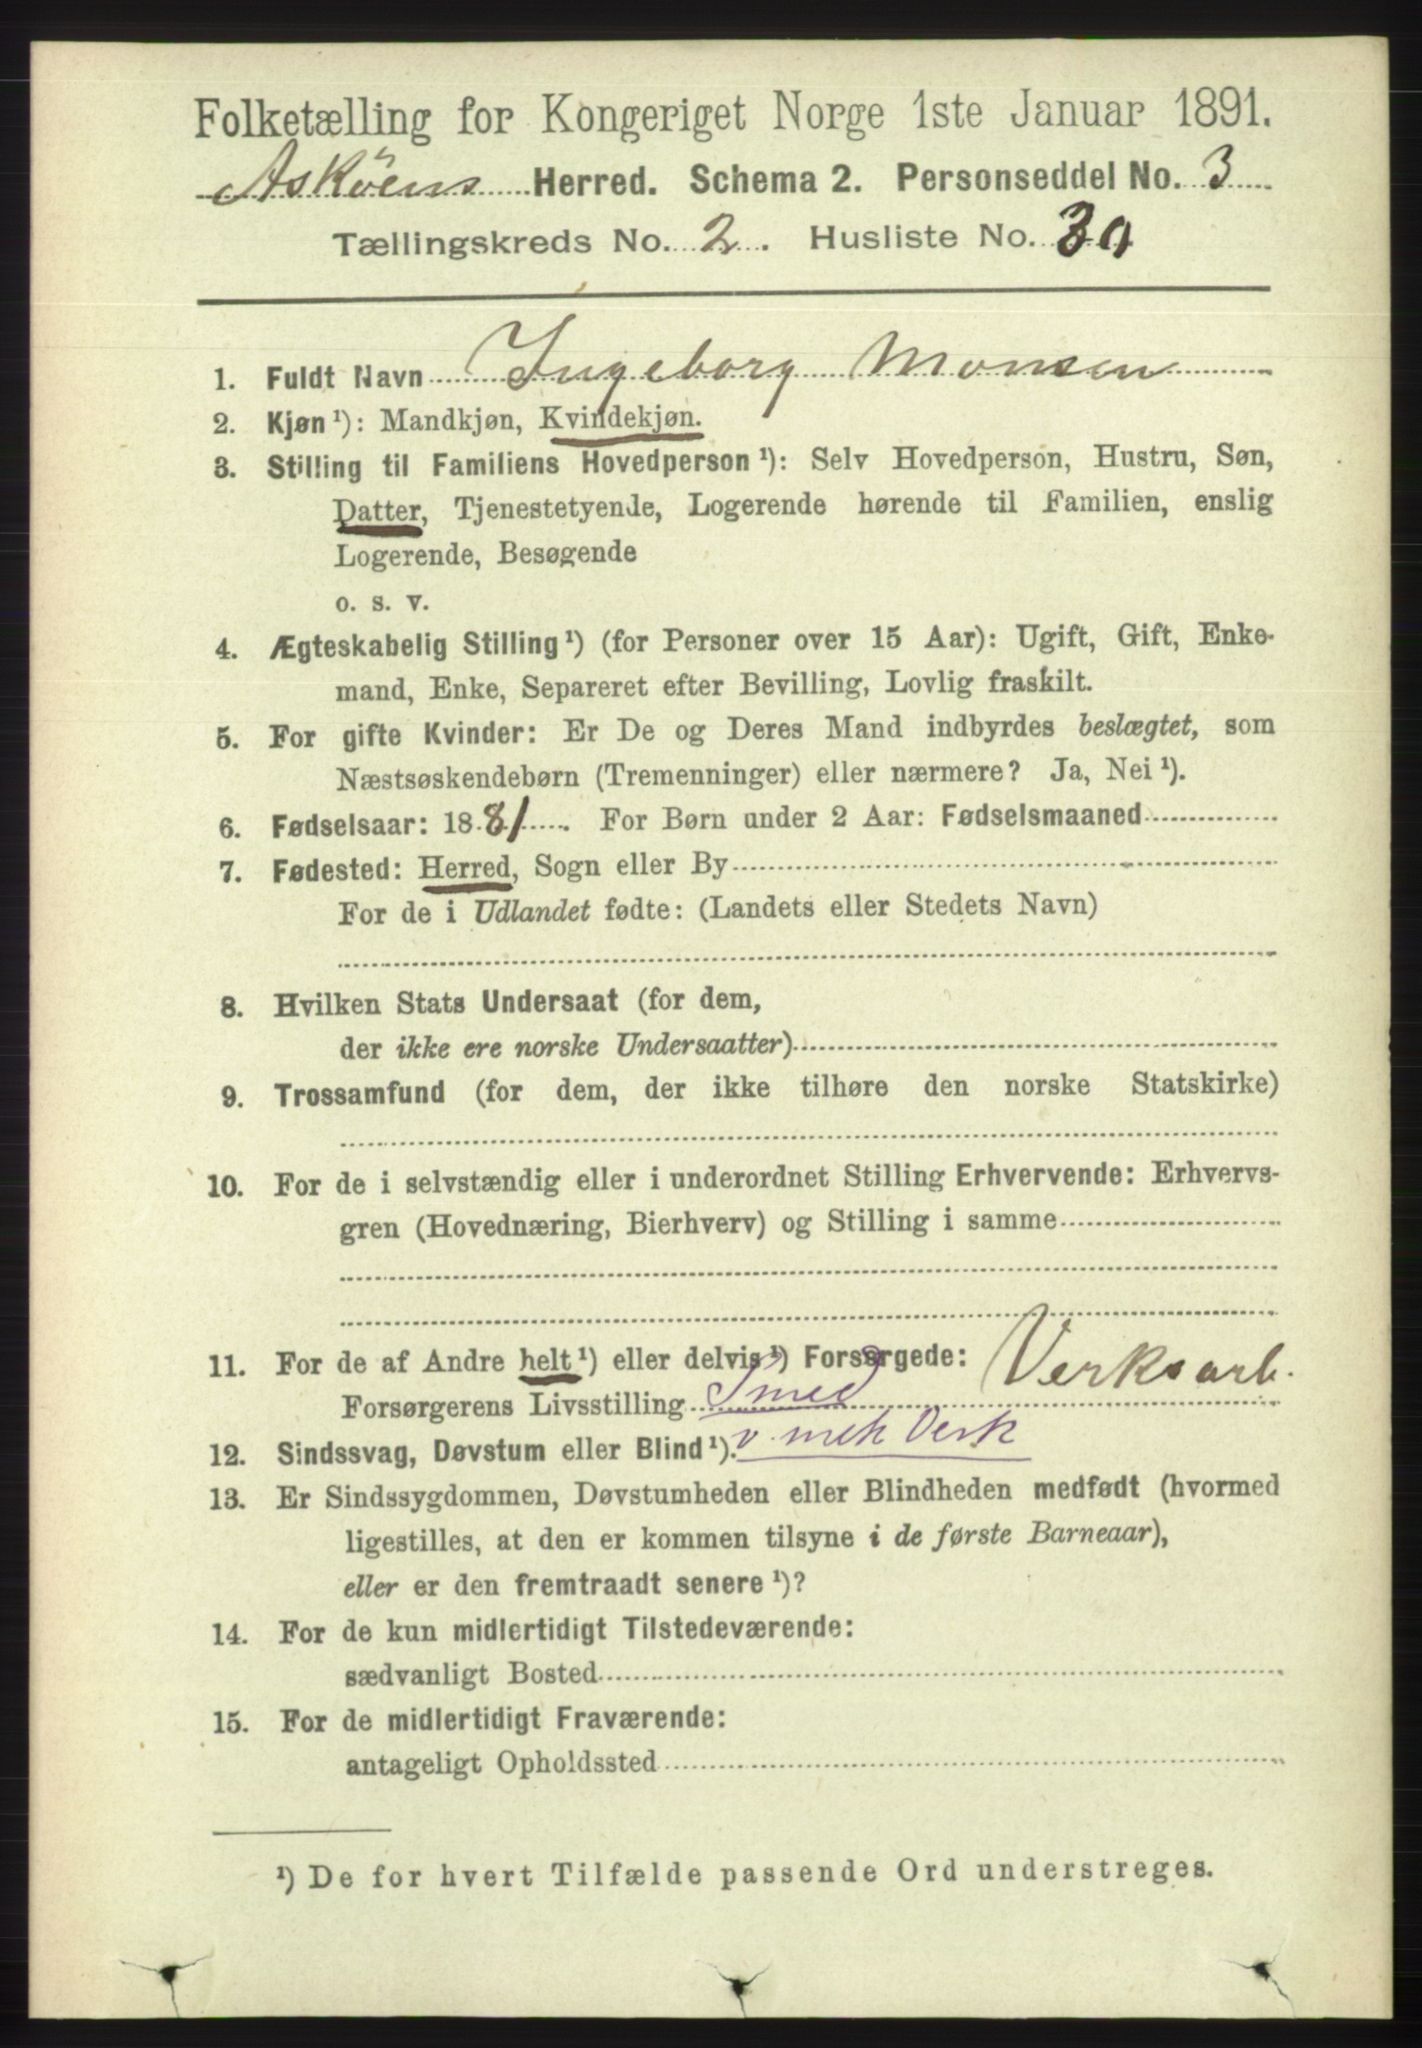 Folketælling for Kongeriget Norge 1ste Januar 1891.
Askøens Herred. Schema 2. Personseddel No. 3
Tællingskreds No. 2. Husliste No. 30
1. Fuldt Navn Ingeborg Monsen
2. Kjøn ¹): Mandkjøn, Kvindekjøn.
3. Stilling til Familiens Hovedperson ¹): Selv Hovedperson, Hustru, Søn,
Datter, Tjenestetyende, Logerende hørende til Familien, enslig
Logerende, Besøgende
o. s. v.
4. Ægteskabelig Stilling ¹) (for Personer over 15 Aar): Ugift, Gift, Enke-
mand, Enke, Separeret efter Bevilling, Lovlig fraskilt.
5. For gifte Kvinder: Er De og Deres Mand indbyrdes beslægtet, som
Næstsøskendebørn (Tremenninger) eller nærmere? Ja, Nei ¹).
6. Fødselsaar: 1881. For Børn under 2 Aar: Fødselsmaaned
7. Fødested: Herred, Sogn eller By
For de i Udlandet fødte: (Landets eller Stedets Navn)
8. Hvilken Stats Undersaat (for dem,
der ikke ere norske Undersaatter)
9. Trossamfund (for dem, der ikke tilhøre den norske Statskirke)
10. For de i selvstændig eller i underordnet Stilling Erhvervende: Erhvervs-
gren (Hovednæring, Bierhverv) og Stilling i samme
11. For de af Andre helt ¹) eller delvis ¹) Forsørgede: Verksarb.
Forsørgerens Livsstilling Smed
12. Sindssvag, Døvstum eller Blind ¹). v mek Verk
13. Er Sindssygdommen, Døvstumheden eller Blindheden medfødt (hvormed
ligestilles, at den er kommen tilsyne i de første Barneaar),
eller er den fremtraadt senere ¹)?
14. For de kun midlertidigt Tilstedeværende:
sædvanligt Bosted
15. For de midlertidigt Fraværende:
antageligt Opholdssted
¹) De for hvert Tilfælde passende Ord understreges.